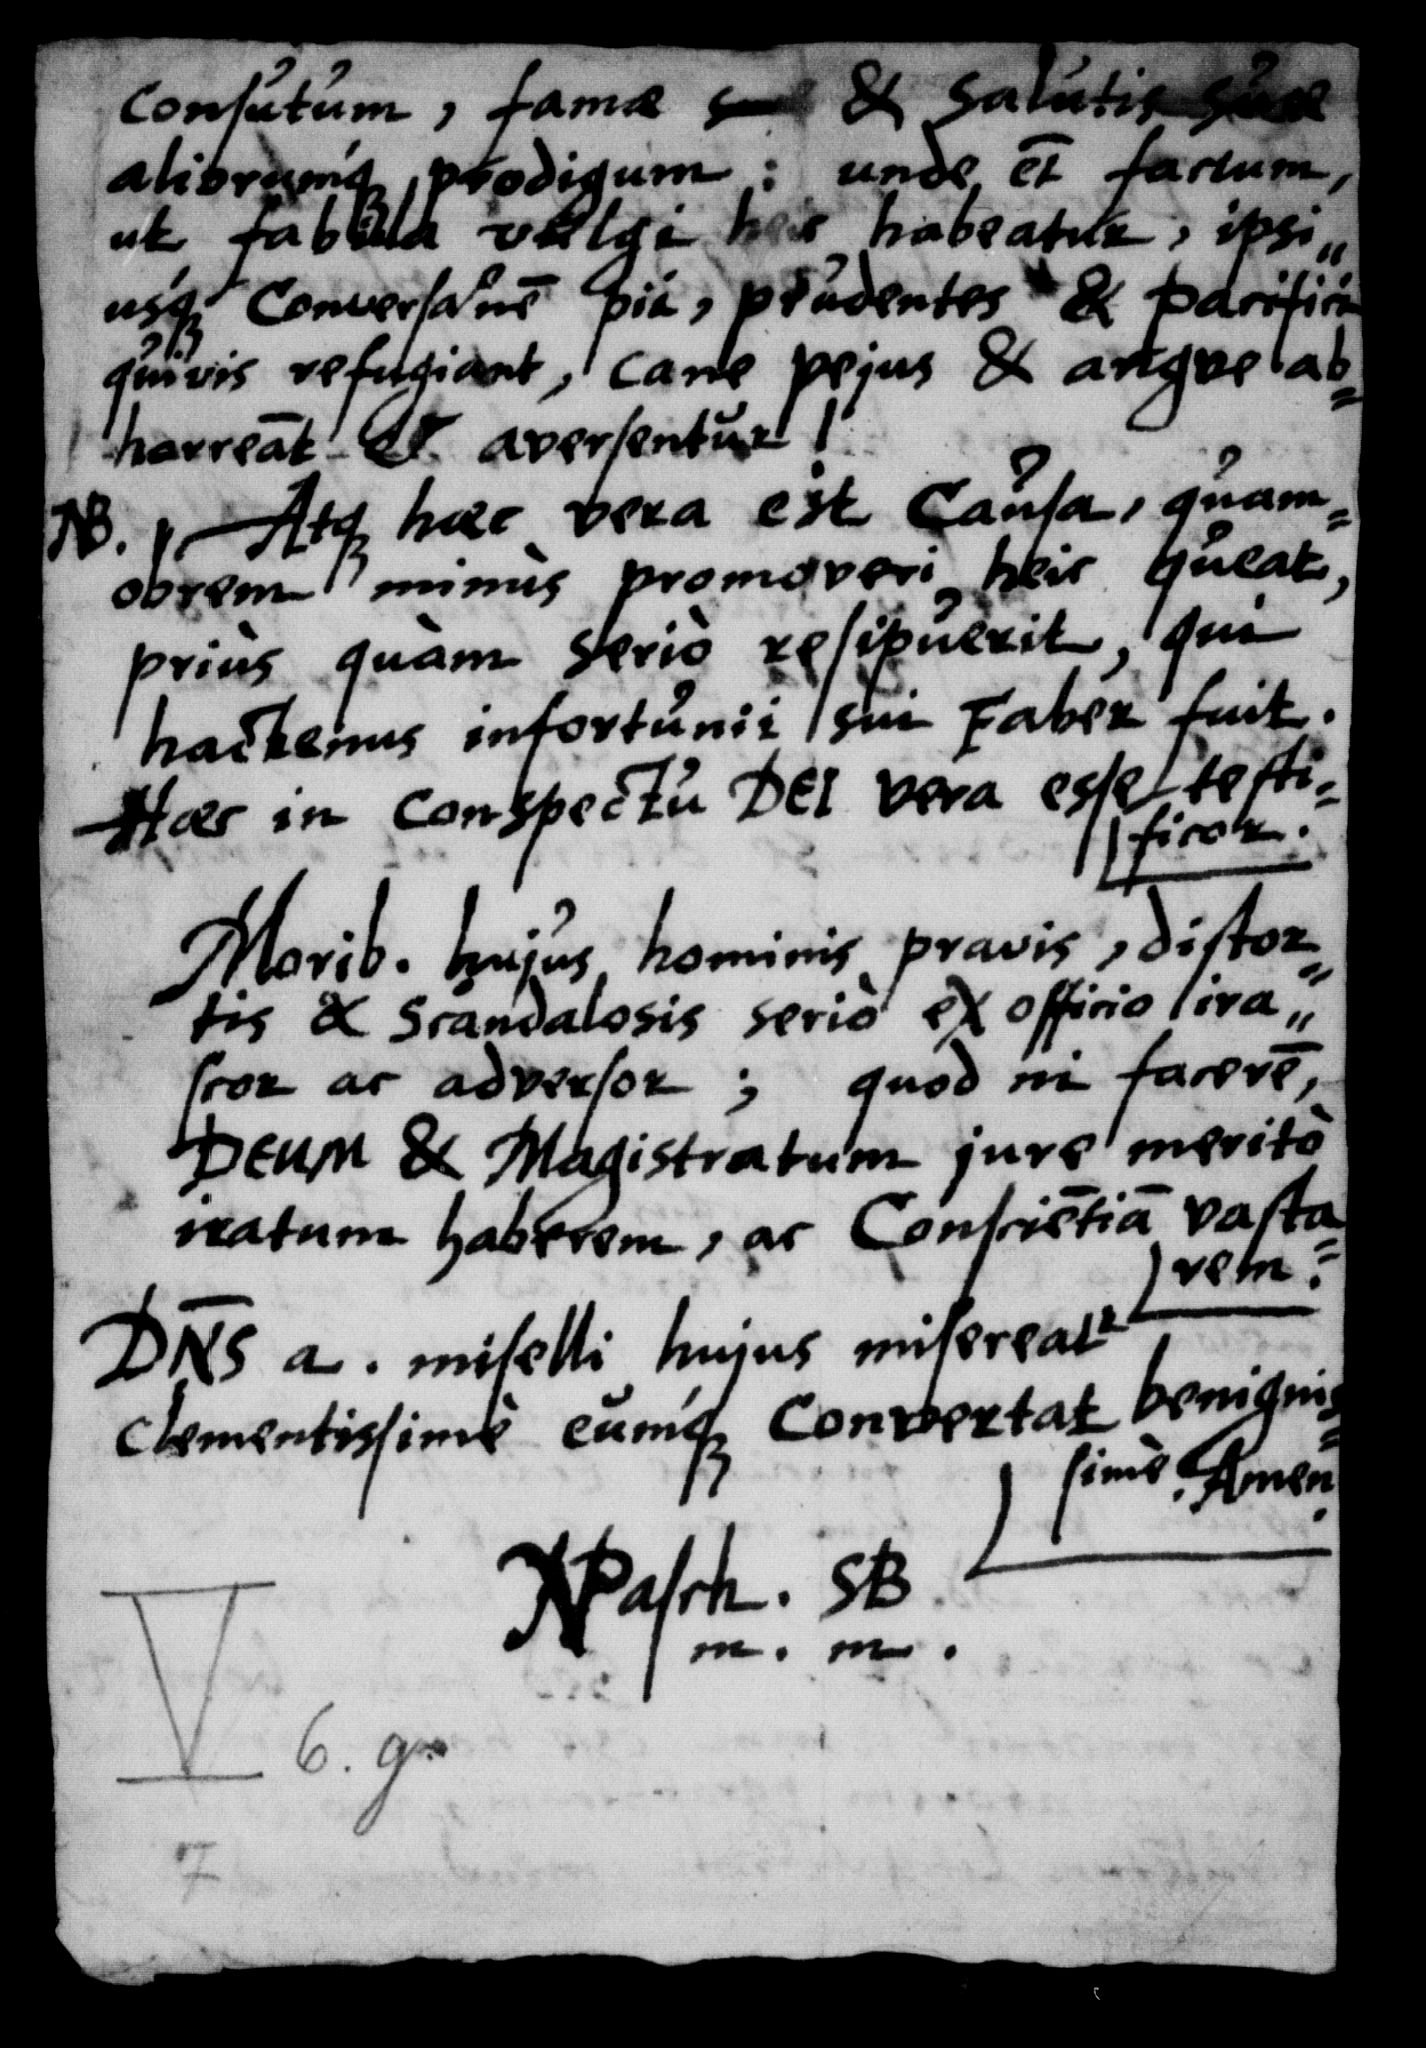 consutum, famæ & salutis suæ
aliorumq́ꝫ prodigum: unde et factum,
ut fabula vulgi heic habeatur, ipsi„
usqꝫ Conversaōnē pii, prudentes & pacifici
quivis refugiant, cane pejus & angve ab=
horreāt et aversentur!
NB. Atqꝫ hæc vera est Causa, quam=
obrem minùs promoveri heic queat,
priùs quàm seriò resipuerit, qui
hactenus infortunii sui Faber fuit.
Hæc in conspectu DEI vera esse testi=
ficor.
Morib. hujus hominis pravis, distor„
tis & scandalosis seriò ex officio ira„
scor ac adversor; quod ni facerē,
DEUM & Magistratum jure meritò
iratum haberem, ac Consciētiā vasta
rem.
DN̄S a. miselli hujus misereatr
clementissimè eumq́ꝫ Convertat benignis=
simè. Amen.
NPasch. SB
m. m.
V 6. g
7